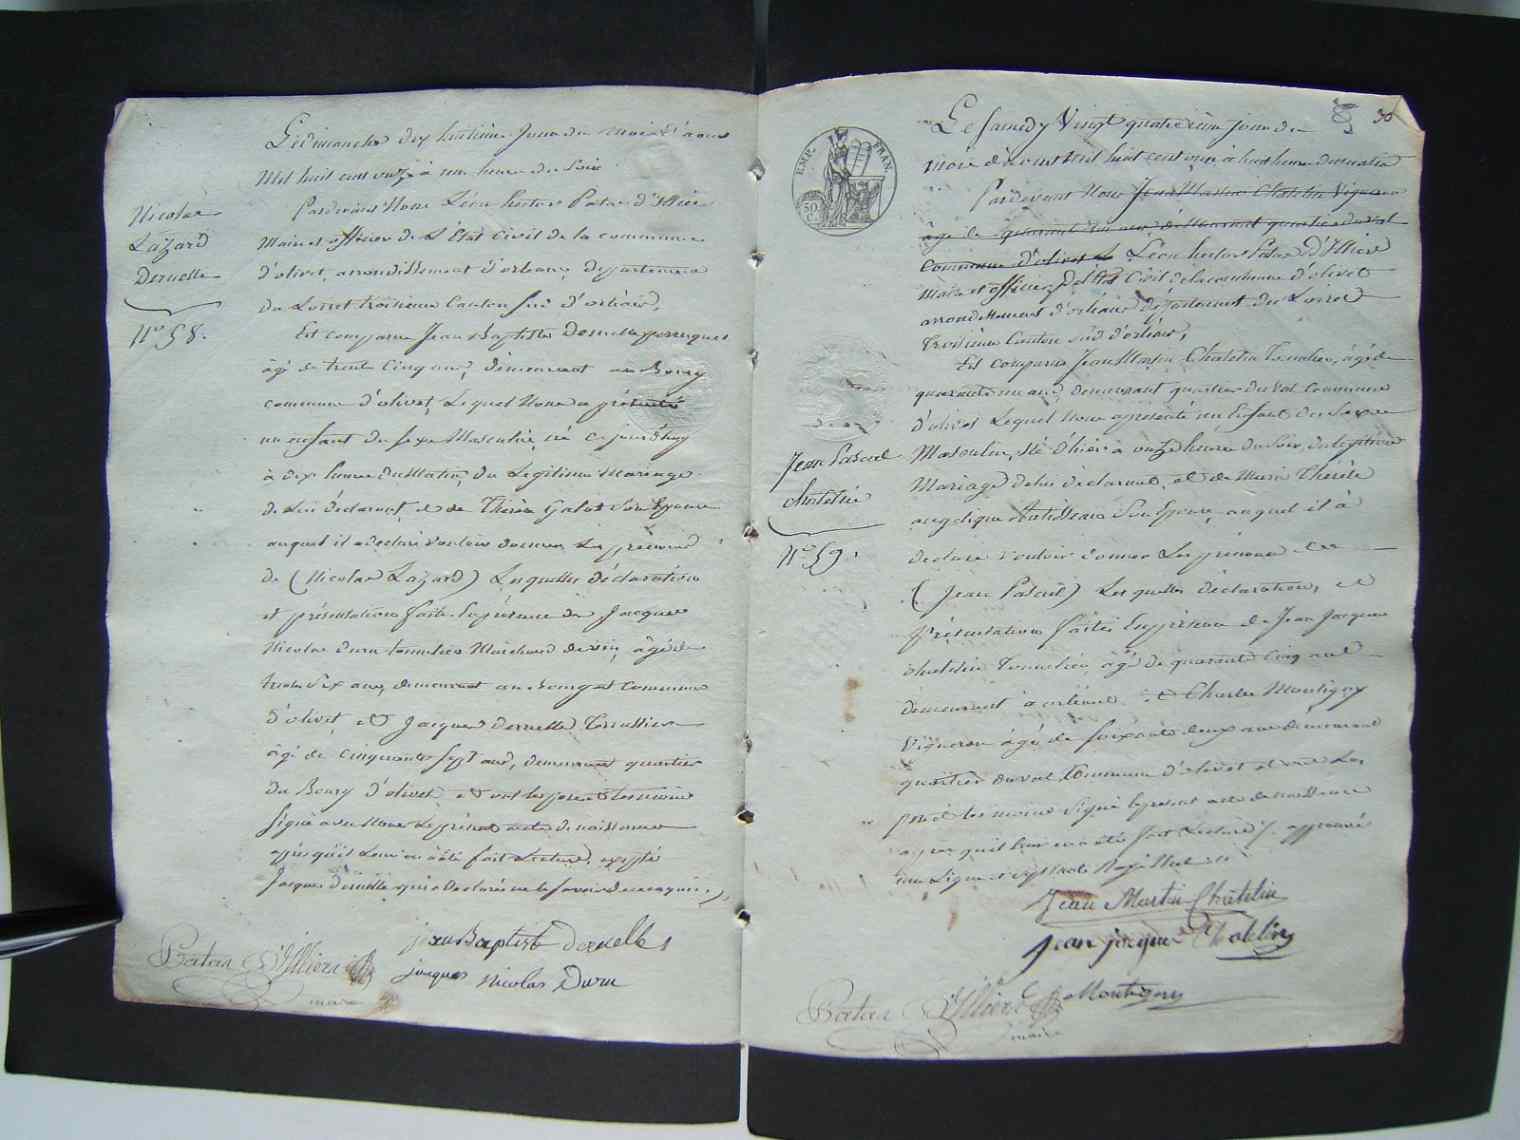 Le Dimanche dix huitième Jour du mois d'aout
Mil huit cent onze à une heure du Soir
Pardevant Nous Léon hector Patas d'Illiers
Maire et officier de L'Etat Civil de la commune
d'olivet, arrondissement d'orleans, departement
du Loiret troisieme Canton sud d'orléans,
Nicolas
Lazard
Deruelle
N.o 58.
Est comparu Jean Baptiste Deruelle perruquier
âgé de trente Cinq ans, demeurant au Bourg
commune d'olivet, Lequel Nous a présenté
un enfant du sexe Masculin, né cejourd'huy
à dix heures du Matin, du Legitime Mariage
de Lui déclarant, et de Thérèse Galot son Epouse
auquel il a déclaré vouloir donner Les prénoms
de (Nicolas Lazard) Lesquelles déclaration
et présentation faite En présence de Jacques
Nicolas Duru tonnelier Marchand de vin, âgé de
trente six ans, demeurant au Bourg et commune
d'olivet, et Jacques deruelle
âgé de cinquante sept ans, demeurant quartier
du Bourg d'olivet, et ont les pere et temoins
signé avec Nous Le présent acte de naissance
après qu'il Leur en a été fait Lecture, excepté
Jacques deruelle qui a déclaré ne le savoir de ce enquis,
Jean Baptiste Deruelle
jacques nicolas Duru
Patas d'Illiers
maire
30
EMP. FRAN.
50 C.
Le Samedy Vingt quatrième Jour du
mois d'aoust mil huit cent onze à huit heures du matin
Pardevant Nous Jean Martin Chatelin Vigneron
âgé de quarante un ans demeurant quartier du val
commune d'olivet Léon hector Patas D'Illiers
maire et officier de l'état Civil de la commune d'olivet
arrondissement d'orléans departement du Loiret
troisième Canton sud d'orléans,
Est comparu Jean Martin Chatelin Tonnelier, âgé de
quarante un ans, demeurant quartier du val commune
d'olivet Lequel Nous a présenté un Enfant du Sexe
Jean Pascal
chatelin
N.o 59.
Masculin, Né d'hier à onze heures du Soir, du legitime
Mariage de lui déclarant, et de Marie Thérèse
angelique son Epouse, auquel il a
declaré vouloir donner Les prénoms de
(Jean Pascal) Lesquelles déclaration, et
présentation faites En présence de Jean Jacques
chatelin Tonnelier âgé de quarante cinq ans
demeurant à orléans et Charles Montigny
Vigneron âgé de soixante deux ans demeurant
quartier du val Commune d'olivet et ont Les
pere et temoins signé le present acte de naissance
apres qu'il leur en a été fait Lecture approuvé
Jean Martin Chatelin
jean jacques Chatelin
Montigny
Patas d'Illiers
maire